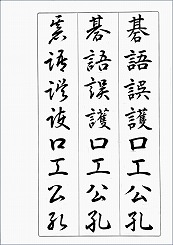 碁語誤護口工公孔
碁語誤護口工公孔
碁語誤護口工公孔